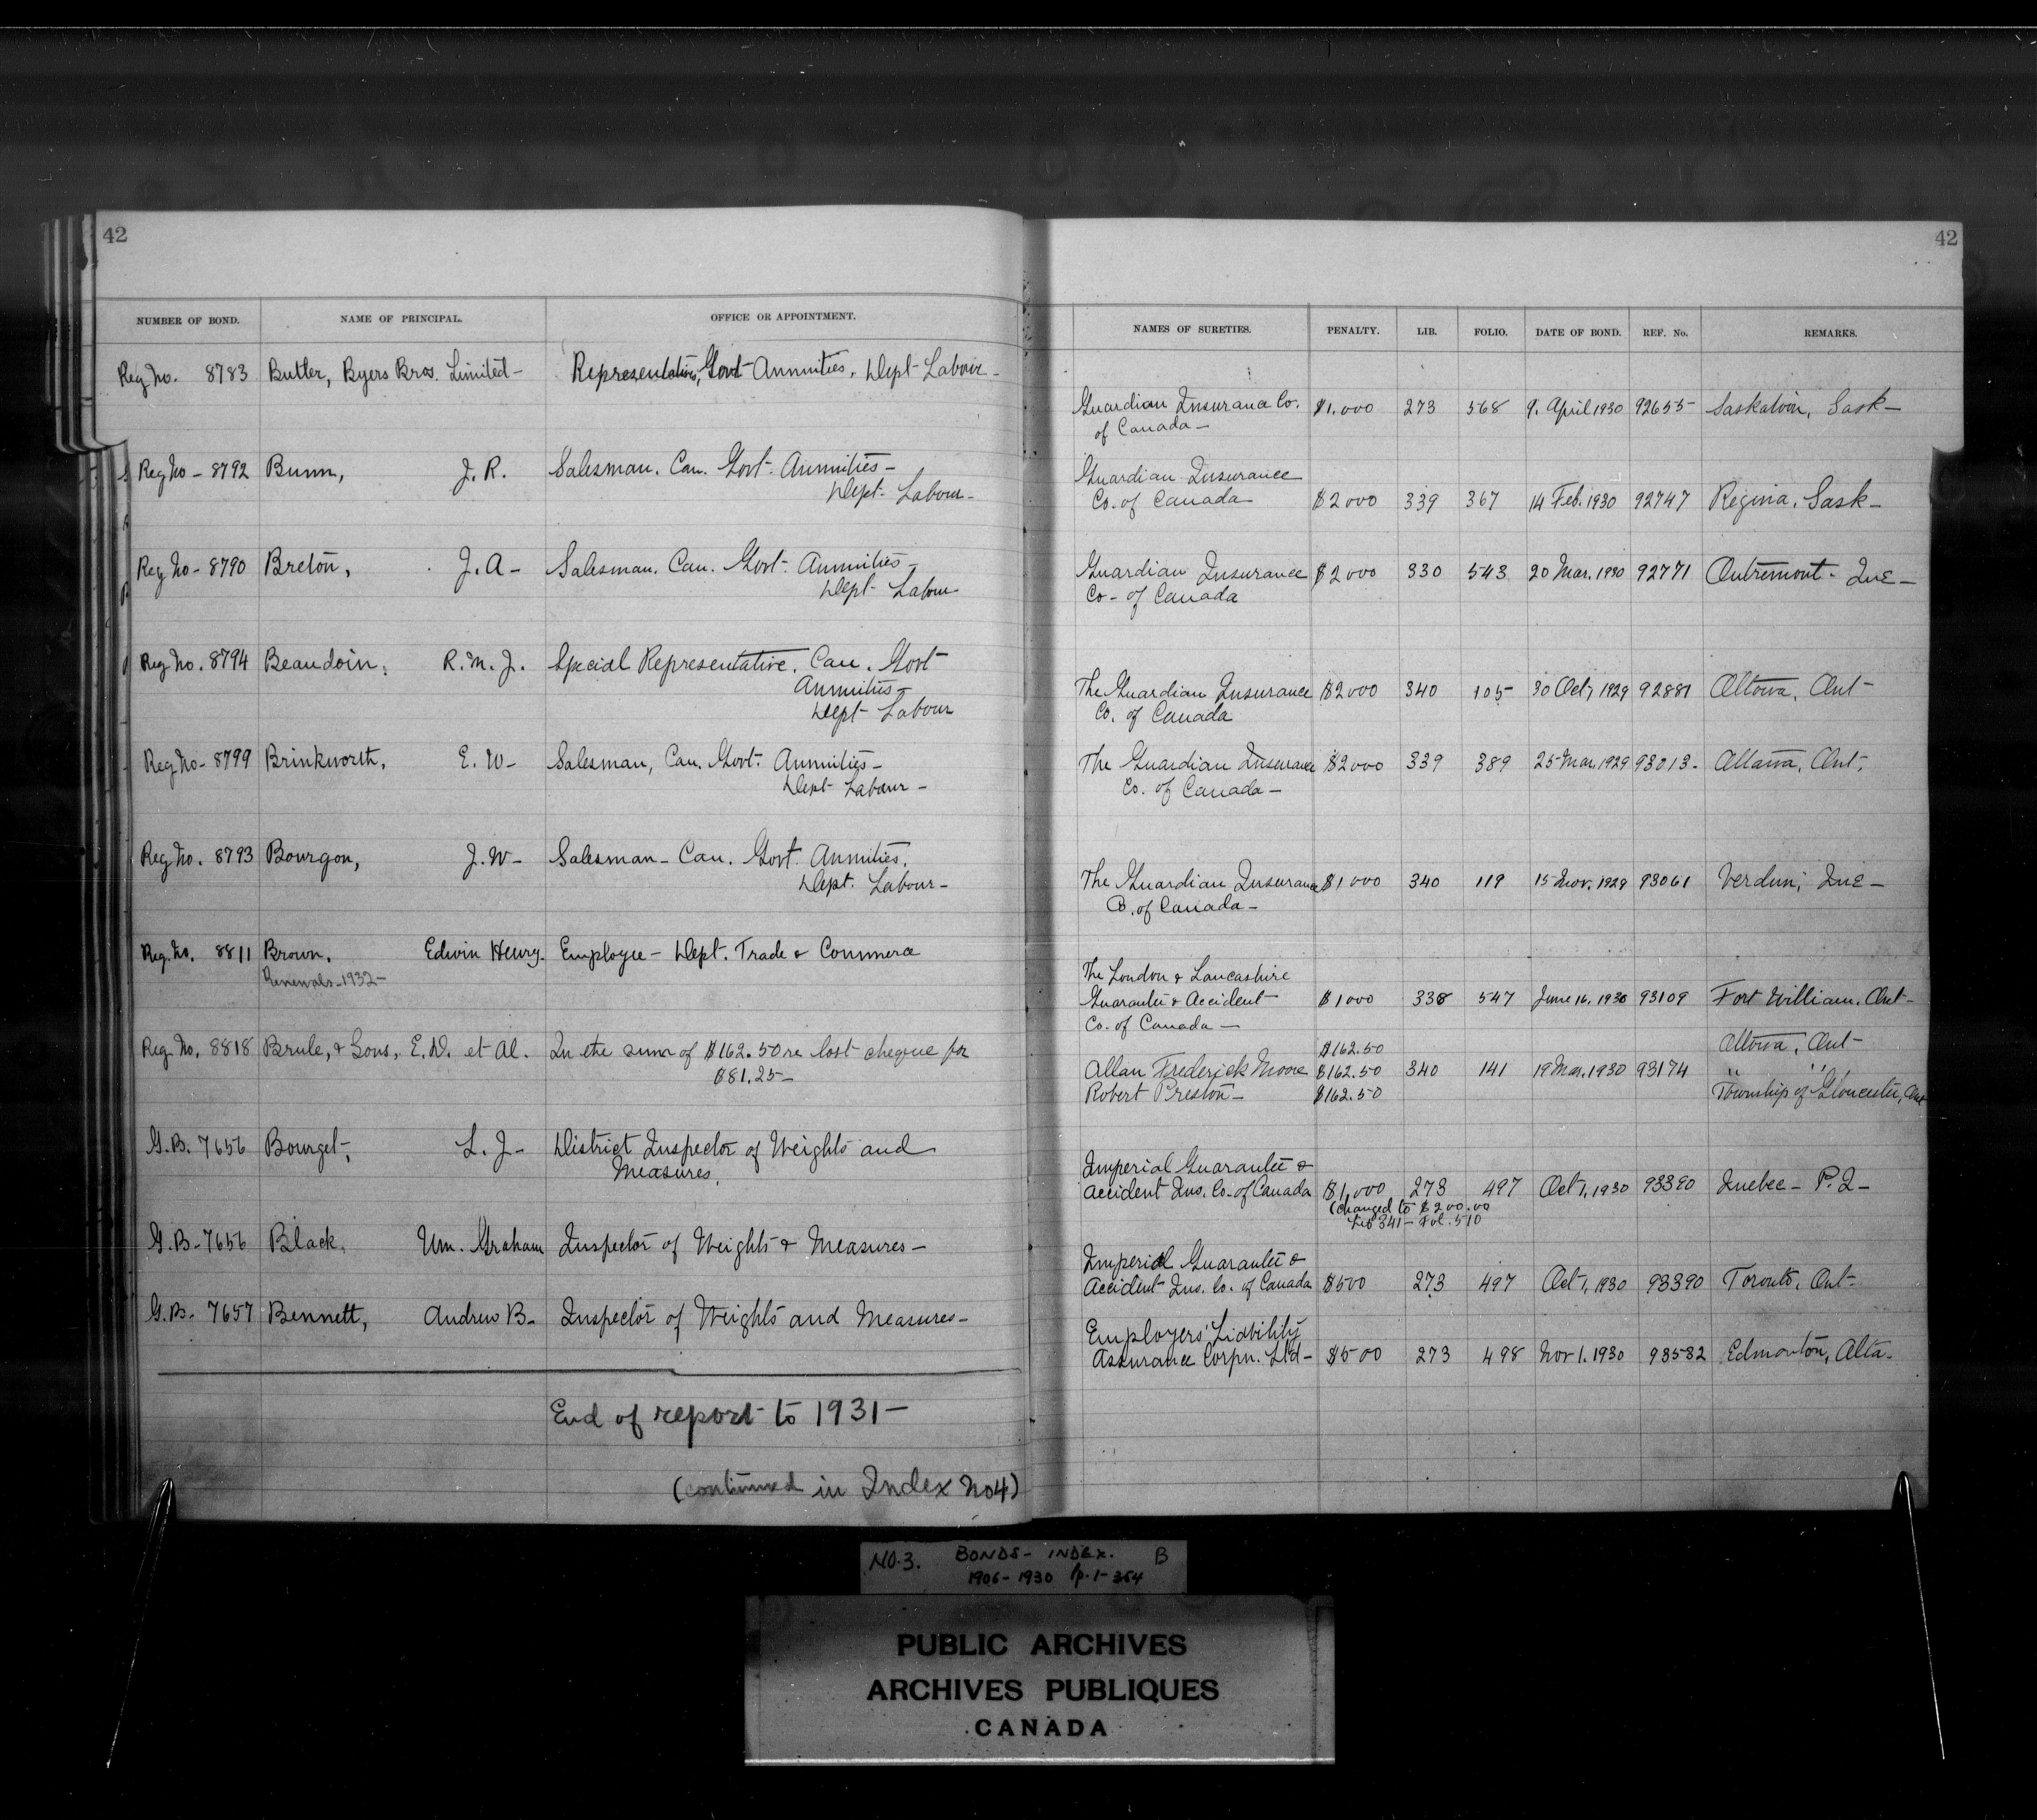 42
42
NUMBER OF BOND. NAME OF PRINCIPAL. OFFICE OR APPOINTMENT. NAMES OF SURETIES. PENALTY. LIB. FOLIO. DATE OF BOND. REF. No. REMARKS.
Reg No. 8783 Butler, Byers Bros. Limited- Representative, Govt Annuities, Dept Labour-
Guardian Insurance Co. $1,000 273 568 9. April 1930 92655 Saskatoon, Sask-
of Canada-
Reg No- 8792 Bunn, J. R. Salesman. Can. Govt. Annuities-
Dept- Labour-
Guardian Insurance
Co. of Canada $2000 339 367 14 Feb. 1930 92747 Regina, Sask-
Reg No- 8790 Breton, J. A- Salesman. Can. Govt. Annuities-
Dept- Labour-
Guardian Insurance $2000 330 543 20 Mar. 1930 92771 Outremont- Que-
Co- of Canada
Reg No. 8794 Beaudoin, R. M. J. Special Representative, Can. Govt
Annuities-
Dept- Labour
The Guardian Insurance $2000 340 105 30 Oct, 1929 92881 Ottawa, Ont-
Co. of Canada
Reg No- 8799 Brinkworth, E. W- Salesman, Can. Govt. Annuities-
Dept- Labour-
The Guardian Insurance $2000 339 389 25 Mar. 1929 93013- Ottawa, Ont-
Co. of Canada-
Reg No. 8793 Bourgon, J. W- Salesman- Can. Govt. Annuities.
Dept. Labour-
The Guardian Insurance $1000 340 119 15 Nov. 1929 93061 Verdun, Que-
Co. of Canada-
Reg. No. 8811 Brown, Edwin Henry. Employee- Dept. Trade & Commerce
Renewals-1932-
The London & Lancashire
Guarantee & Accident $1000 338 547 June 16, 1930 93109 Fort William, Ont-
Co. of Canada-
Reg. No. 8818 Brule, & Sons, E. D. et Al. In the sum of $162.50 re lost cheque for
$81.25-
$162.50 Ottawa, Ont-
Allan Frederick Moore $162.50 340 141 19 Mar. 1930 93174 " "
Robert Preston- $162.50 Township of Gloucester, Ont
G.B. 7656 Bourget, L. J- District Inspector of Weights and
Measures.
Imperial Guarantee &
Accident Ins. Co. of Canada $1,000 273 497 Oct 1, 1930 93390 Quebec- P.Q-
(changed to $200.00
Lib 341- Fol. 510
G.B-7656 Black, Wm. Graham Inspector of Weights & Measures-
Imperial Guarantee &
Accident Ins. Co. of Canada $500 273 497 Oct 1, 1930 93390 Toronto, Ont-
G.B. 7657 Bennett, Andrew B- Inspector of Weights and Measures-
Employers' Liability
Assurance Corpn. Ltd- $500 273 498 Nov 1. 1930 93532 Edmonton, Alta-
End of report to 1931-
(continued in Index No4)
NO.3. BONDS- INDEX. B
1906-1930 p.1-354
PUBLIC ARCHIVES
ARCHIVES PUBLIQUES
CANADA